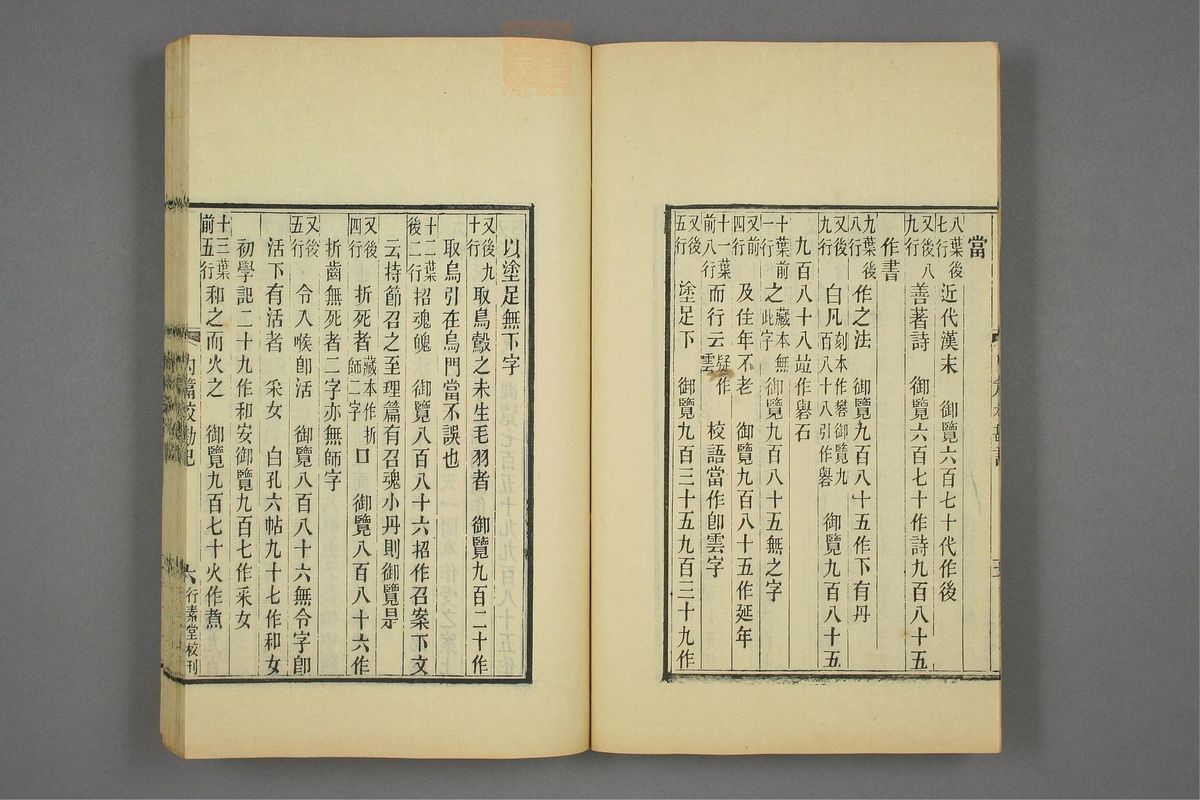 當
八葉後七行 近代漢末 御覽六百七十代作後
又後八九行 善著詩 御覽六百七十作詩九百八十五
作書
九葉後八行 作之法 御覽九百八十五作下有丹
又後九行 白凡刻本作礬御覽九百八十八引作礜 御覽九百八十五
九百八十八竝作礜石
十葉前一行 之藏本無此字 御覽九百八十五無之字
又前四行 及佳年不老 御覽九百八十五作延年
十一葉前八行 而行云疑作雲 校語當作卽雲字
又後五行 塗足下 御覽九百三十五九百三十九作
以塗足無下字
又後九十行 取烏鷇之未生毛羽者 御覽九百二十作
取烏引在烏門當不誤也
十二葉後二行 招魂魄 御覽八百八十六招作召案下文
云持節召之至理篇有召魂小丹則御覽是
又後四行 折死者藏本作折師二字 口 御覽八百八十六作
折齒無死者二字亦無師字
又後五行 令入喉卽活 御覽八百八十六無令字卽
活下有活者 采女 白孔六帖九十七作和女
初學記二十九作和安御覽九百七作采女
十三葉前五行 和之而火之 御覽九百七十火作煮
內篇校勘記
六
行素堂校刊